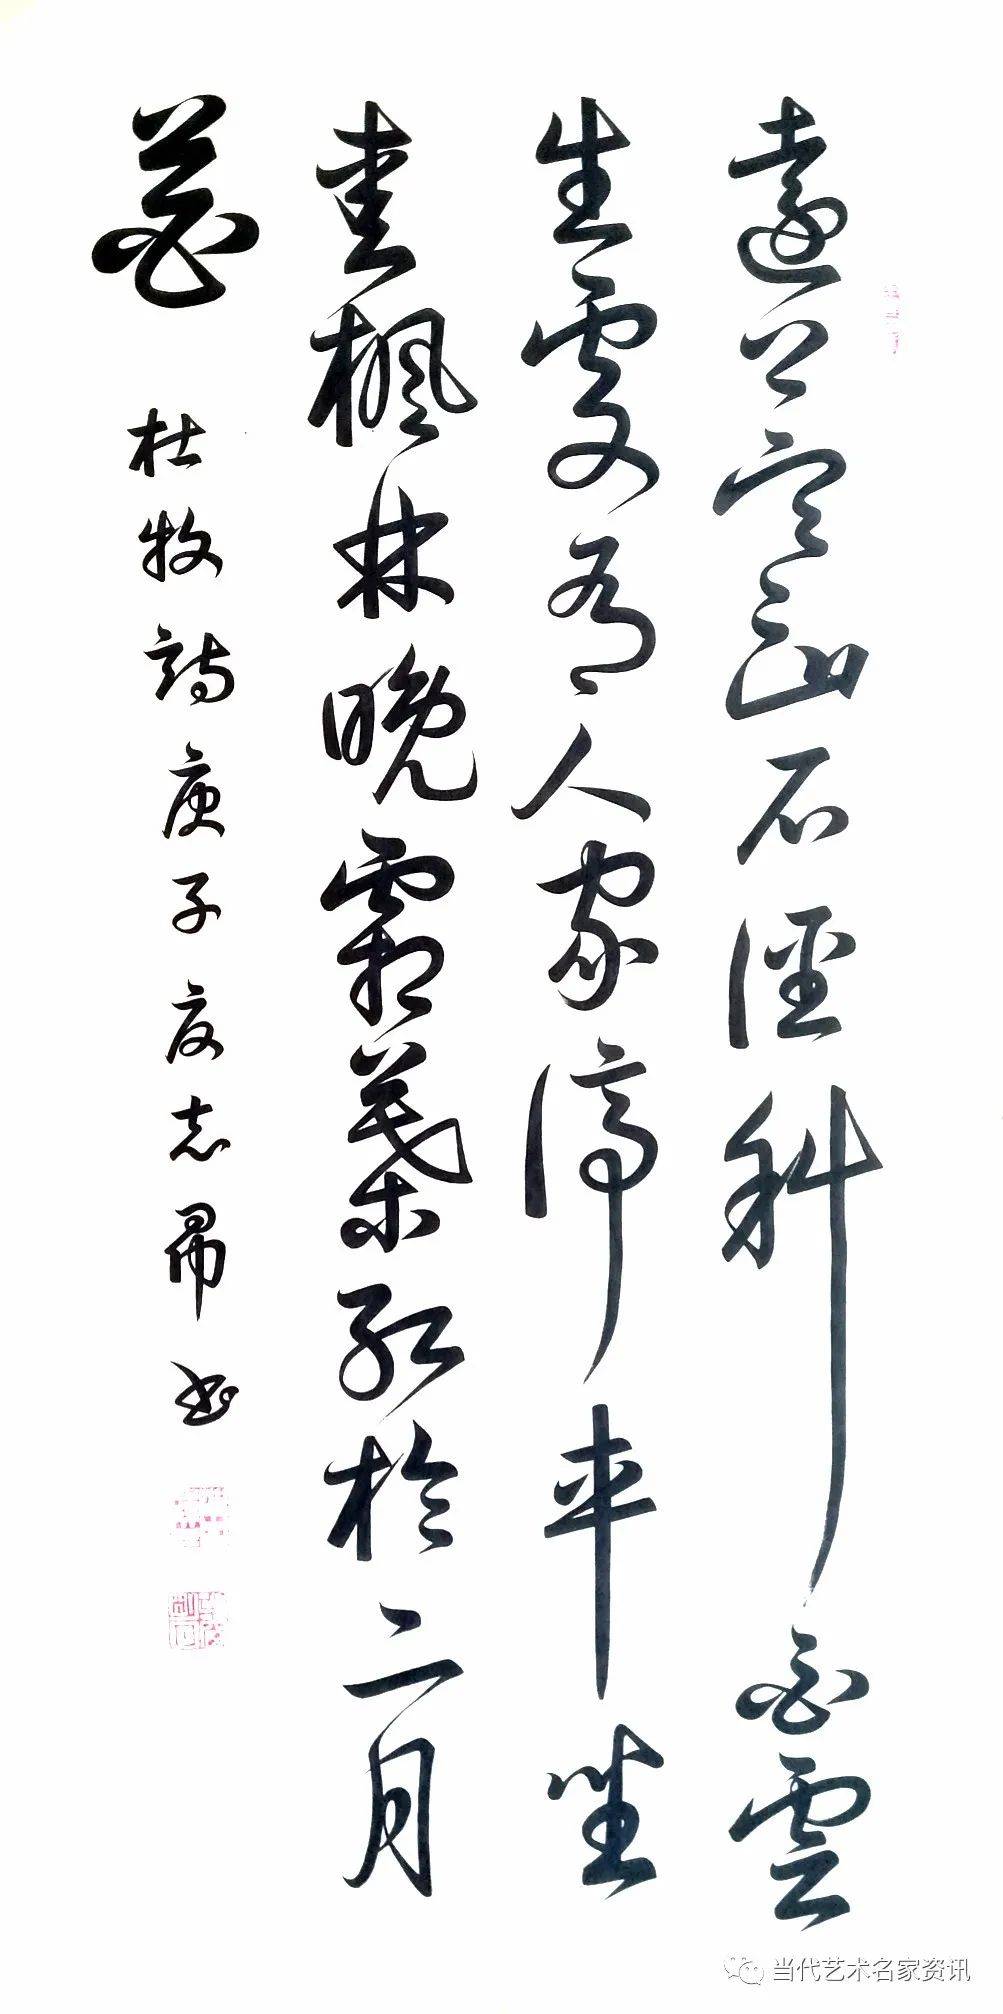 遠上寒山石徑斜白雲
生處有人家停車坐
愛楓林晚霜葉紅於二月
花
杜牧詩庚子夏志書
当代艺术名家资讯